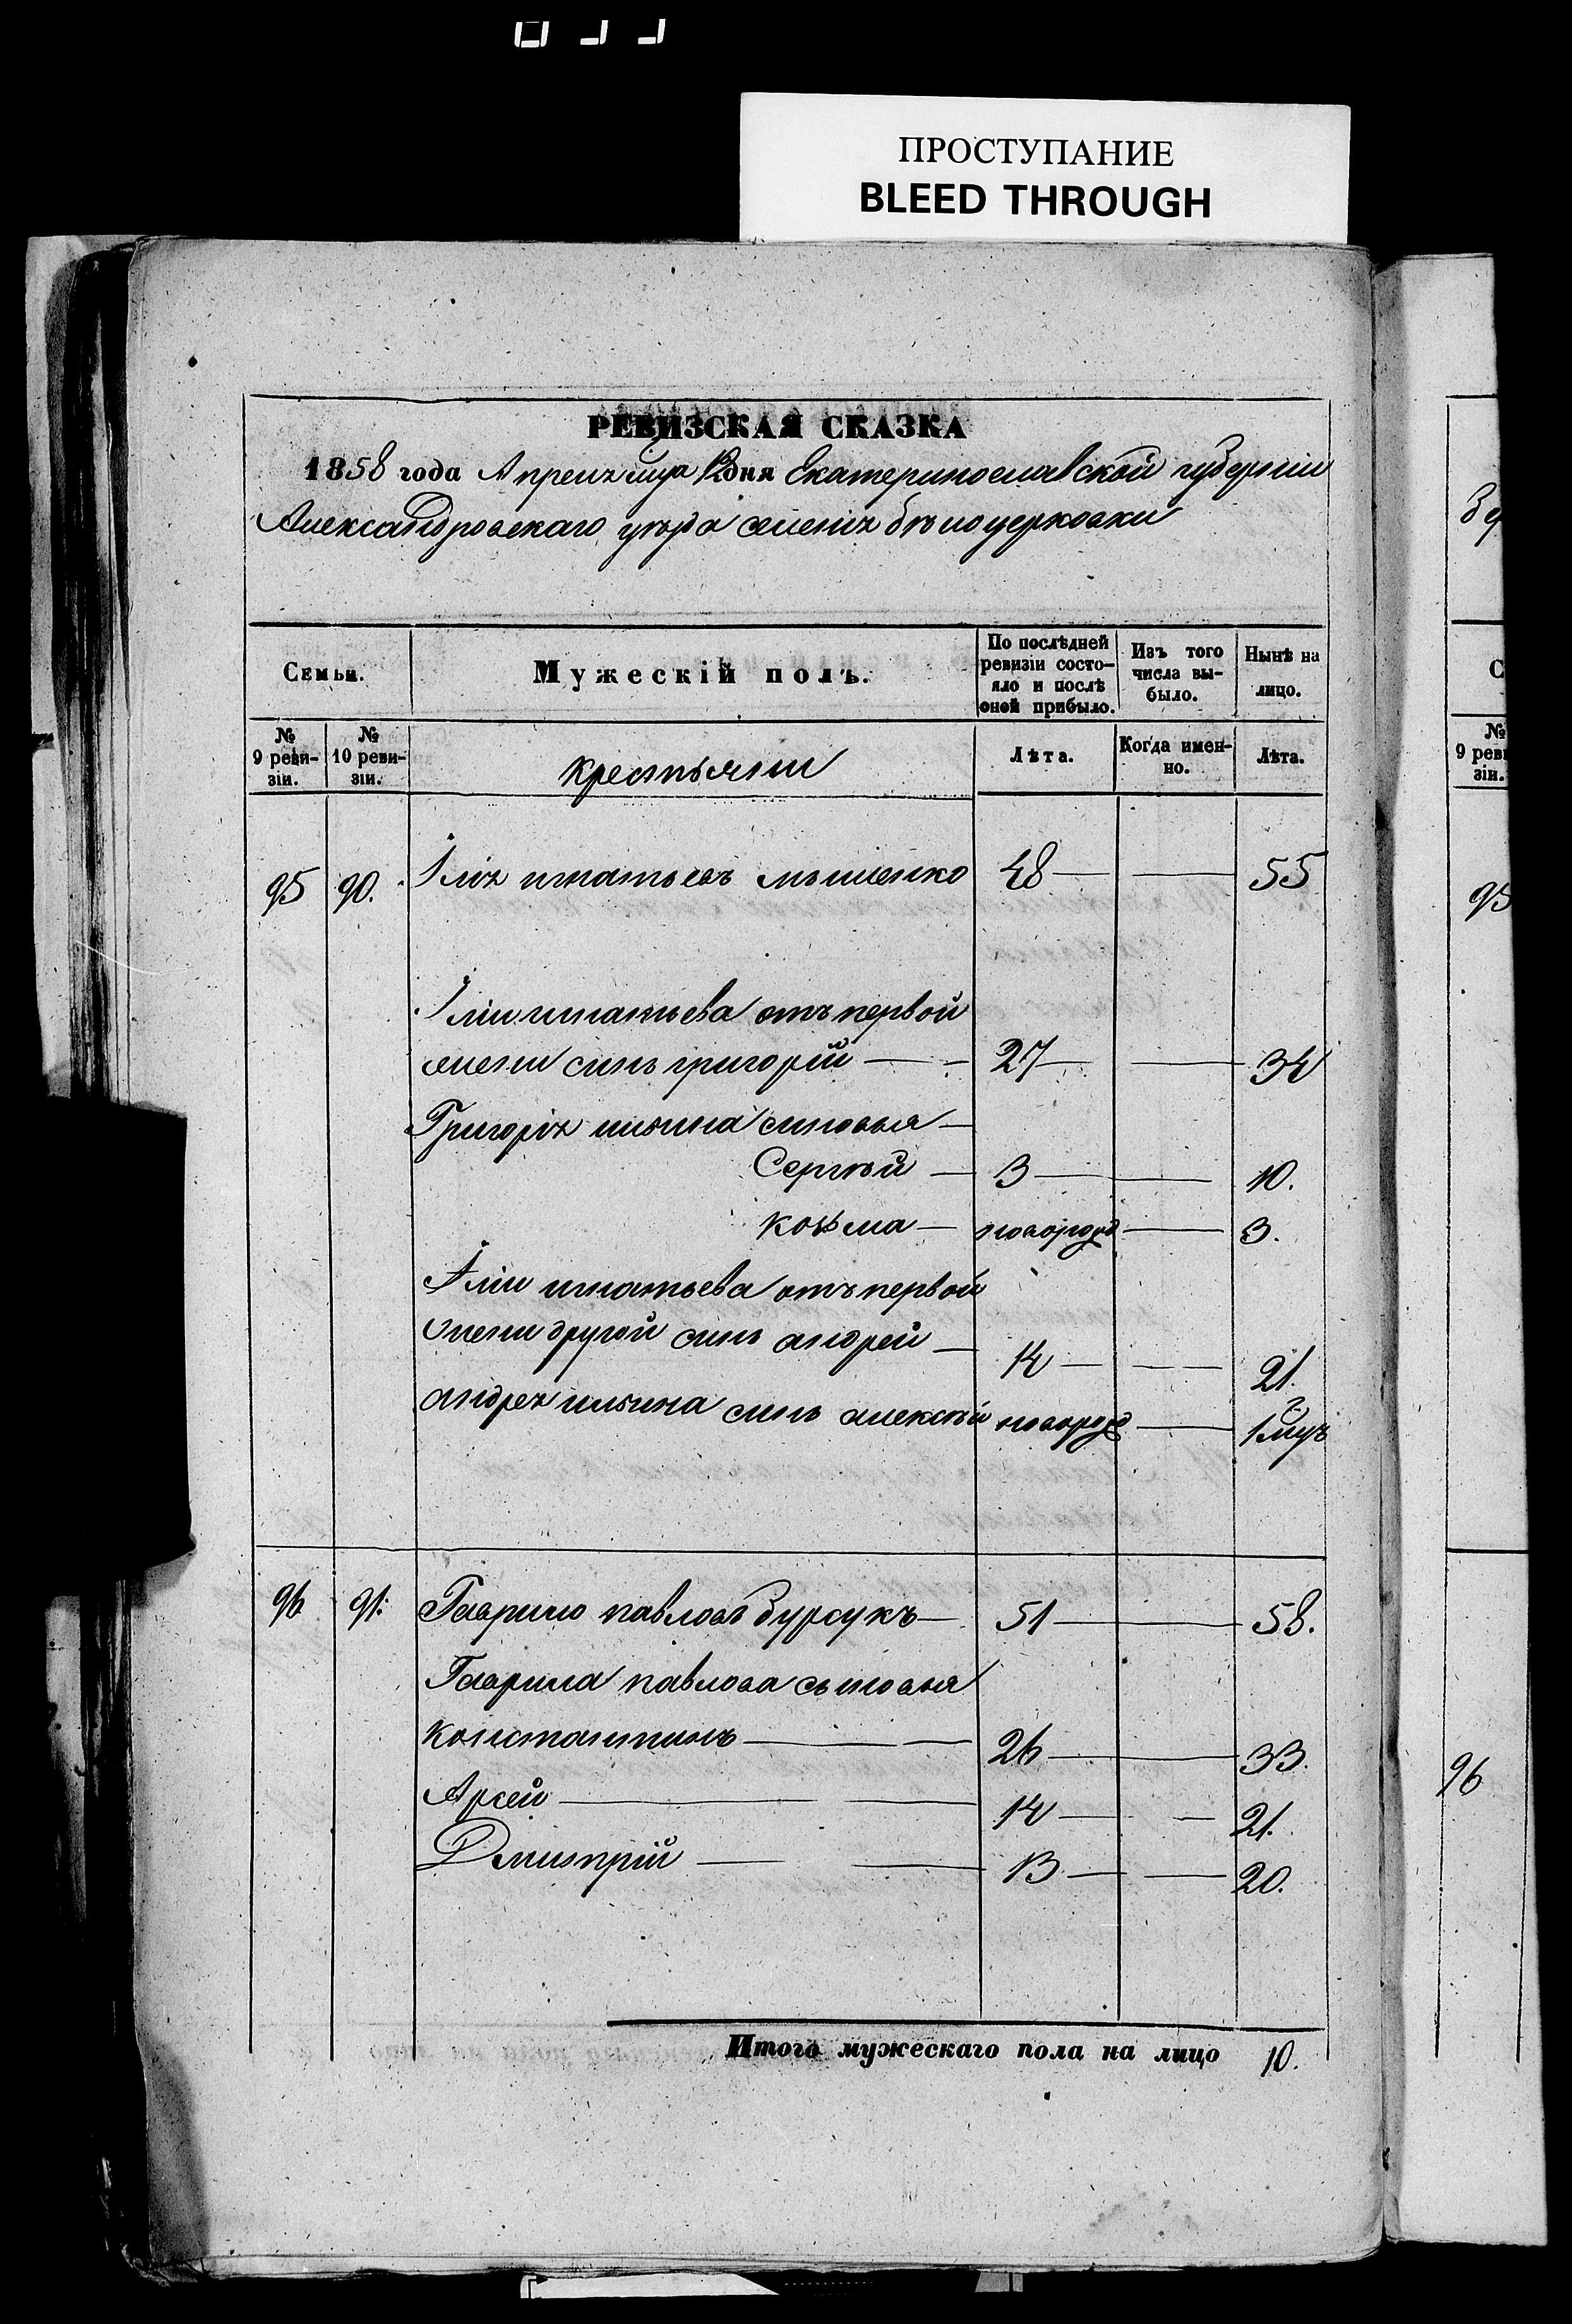 ПРОСТУПАНИЕ
BLEED THROUGH
РЕВИЗСКАЯ СКАЗКА
1858 года Апреля мца 12 дня Екатеринославской губернии
Александровскаго уезда селенія бѣлоцерковки
Семьи.
Мужескій полъ.
По послѣдней ревизіи состо-
яло и послѣ оной прибыло.
Изъ того числа вы-
было.
Нынѣ на лицо.
№ 9 реви-
зіи.
№ 10 реви-
зіи.
крестьяни
Лѣта.
Когда имен-
но.
Лѣта.
95 90. Ілія игнатьевъ 48 55
Іліи игнатьева отъ первой
жены синъ григорій 27 34
Григорія ильина синовья
Сергѣй 3 10.
козьма новорожд 3.
Іліи игнатьева отъ первой
жены другой синъ андрей 14 21.
андрея ильина синъ алексѣй новорожд 1 мцъ
96 91. Гаврило павловъ бурсукъ 51 58.
Гаврила павлова сыновья
константинъ 26 33.
Арсей 14 21.
Дмитрій 13 20.
Итого мужескаго пола на лицо 10.
№ 9 рев
зіи.
95
96